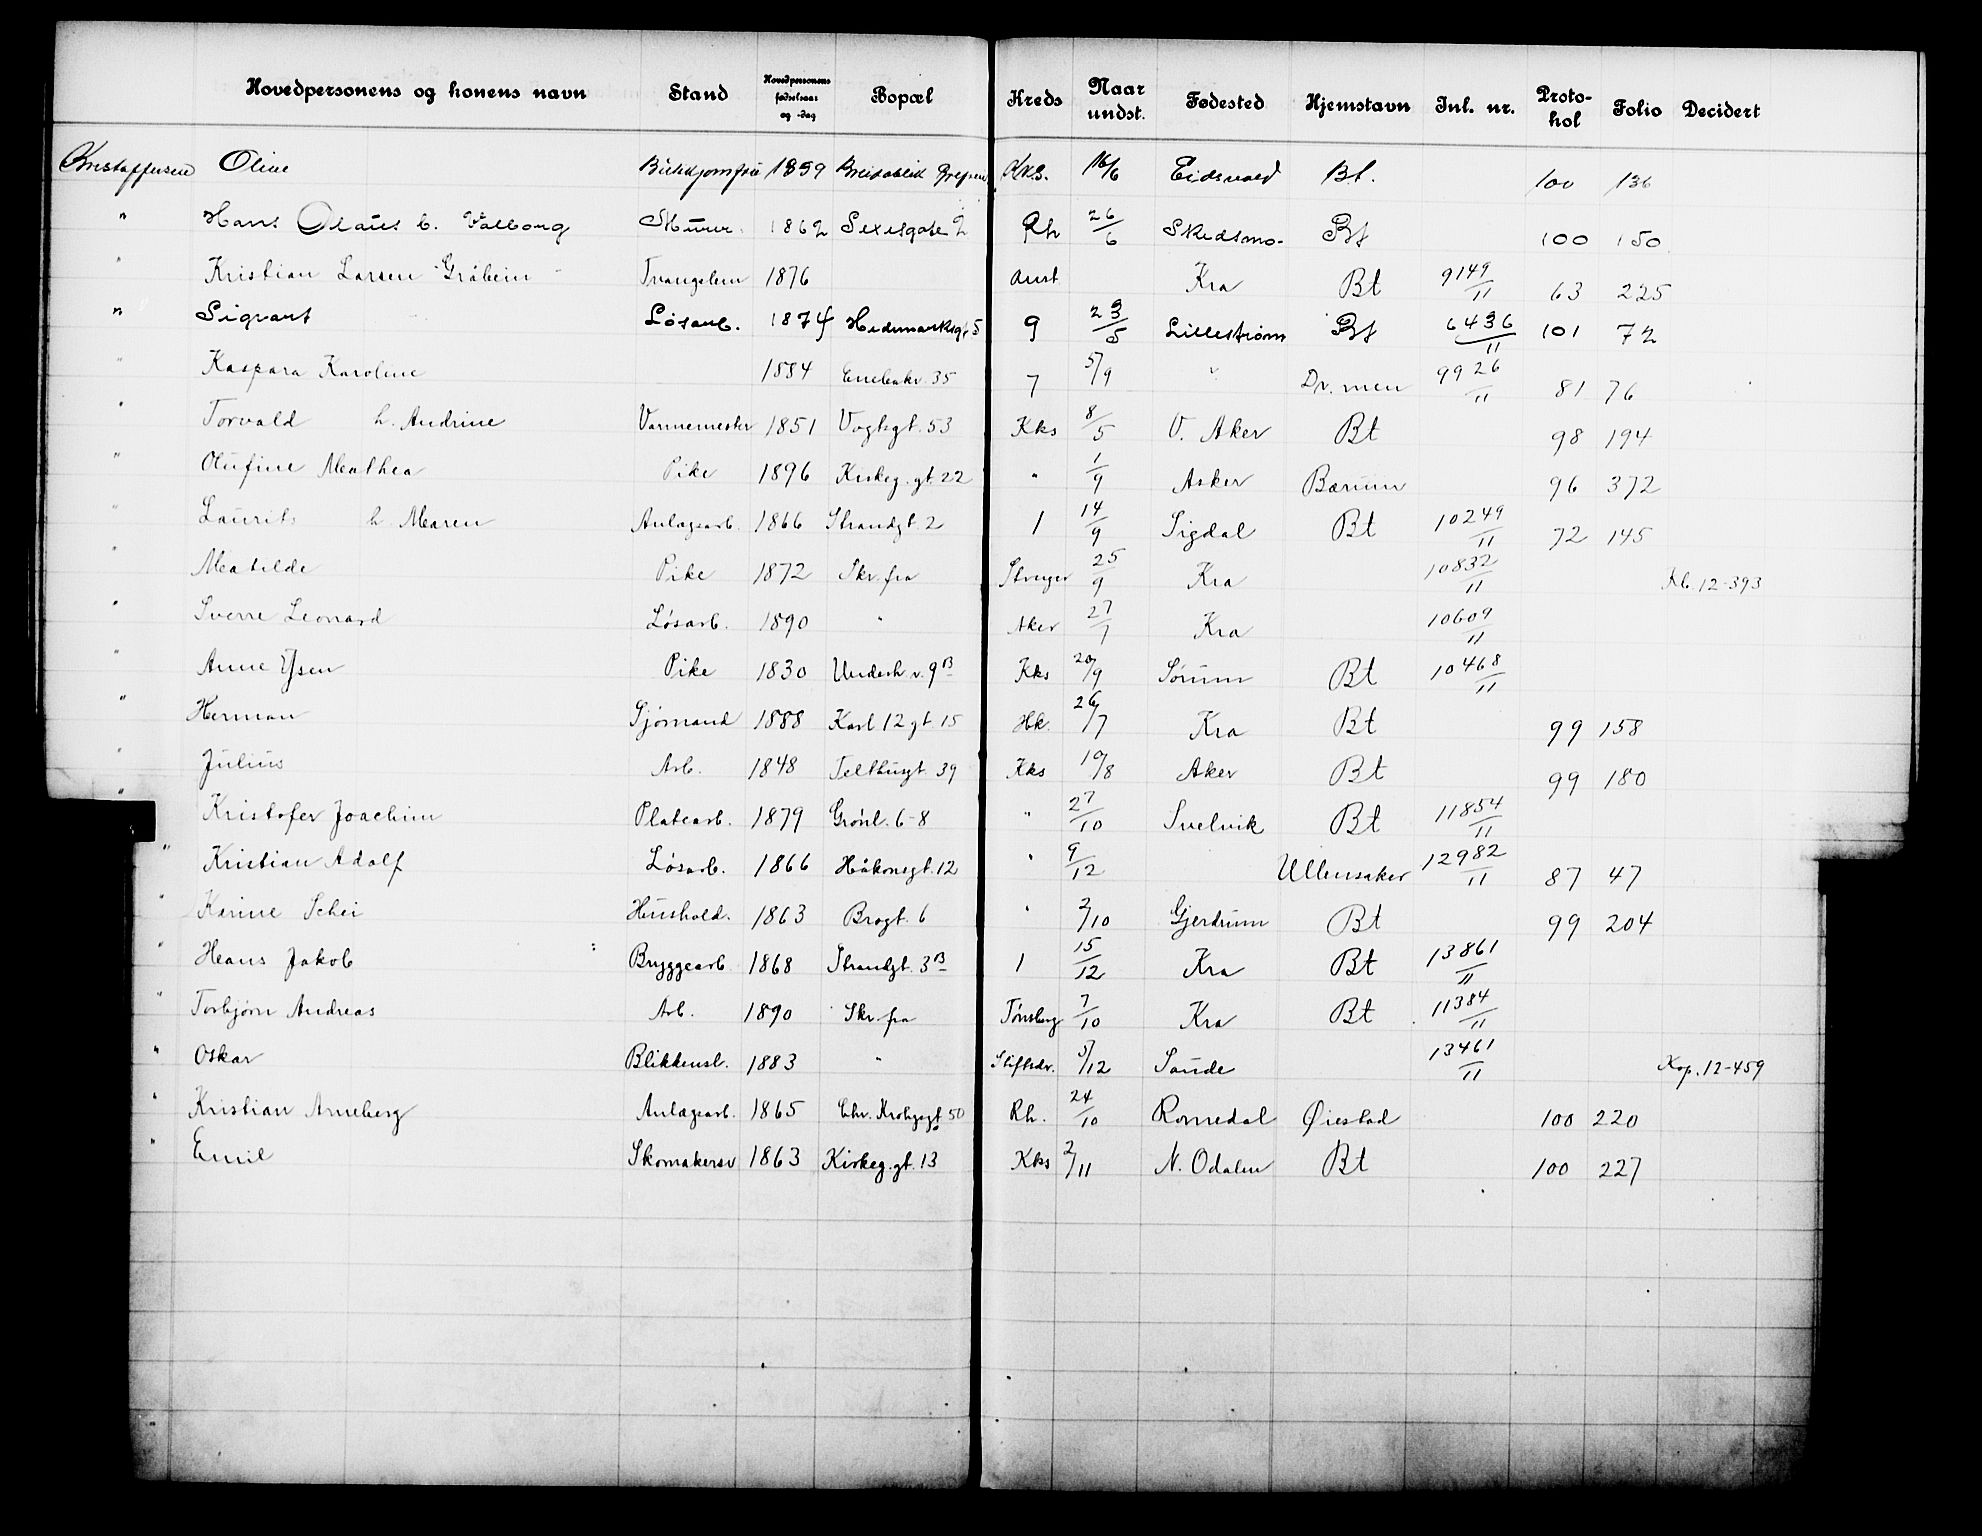 Hovedpersonens og konens navn Stand Hovedpersonens fødselsaar og -dag Bopæl Kreds Naar undst. Fødested Hjemstavn Inl. nr. Proto-kol Folio Decidert
Kristoffersen Oline 1859 Kks. 16/6 Eidsvold Bt. 100 136
" Hans Olaus h. Valborg Murer. 1862 2 Rh 26/6 Skedsmo Bt 100 150
" Kristian Larsen Gråbein Tvangslem 1876 Anst Kra Bt 9149/11 63 225
" Sigvart Løsarb. 1874 Hedemarksgt 5 9 23/5 Lillestrøm Bt 6436/11 101 72
" Kaspara Karoline 1884 Enebakv. 35 7 5/9 " Dr. men 9926/11 81 76
" Torvald h. Andrine Varmemester 1851 Vogtsgt. 53 Kks 8/5 V. Aker Bt 98 194
" Olufine Mathea Pike 1896 Kirkeg. gt. 22 " 1/9 Asker Bærum 96 372
" Laurits h. Maren Anlægsarb. 1866 Strandgt. 2 1 14/9 Sigdal Bt 10249/11 72 145
" Matilde Pike 1872 Skr. fra 25/9 Kra 10832/11 Kb. 12-393
" Sverre Leonard Løsarb. 1890 " Aker 27/7 Kra 10609/11
" Anne Pike 1830 9B Kks 20/9 Sørum Bt 10468/11
" Herman Sjømand 1888 Karl 12 gt. 15 Hk. 26/7 Kra Bt 99 158
" Julius Arb. 1848 Telthusgt. 39 Kks 10/8 Aker Bt 99 180
" Kristofer Joachim Platearb. 1879 Grønl. 6-8 " 27/10 Svelvik Bt 11854/11
" Kristian Adolf Løsarb. 1866 Håkonsgt. 12 " 9/12 Ullensaker 12982/11 87 47
" Karine Schei Hushold. 1863 Brogt. 6 " 2/10 Gjerdrum Bt 99 204
" Hans Jakob Bryggearb. 1868 Strandgt. 3B 1 15/12 Kra Bt 13861/11
" Torbjørn Andreas Arb. 1890 Skr. fra Tønsberg 7/10 Kra Bt 11384/11
" Oskar Blikkensl. 1883 " Stiftsdr. 5/12 Sande 13461/11 Kop. 12-459
" Kristian Arneberg Anlægsarb. 1865 Chr. Krohgsgt 50 Rh. 24/10 Romedal Øiestad 100 220
" Emil Skomakersv 1863 Kirkeg. gt. 13 Kks 2/11 N. Odalen Bt 100 227